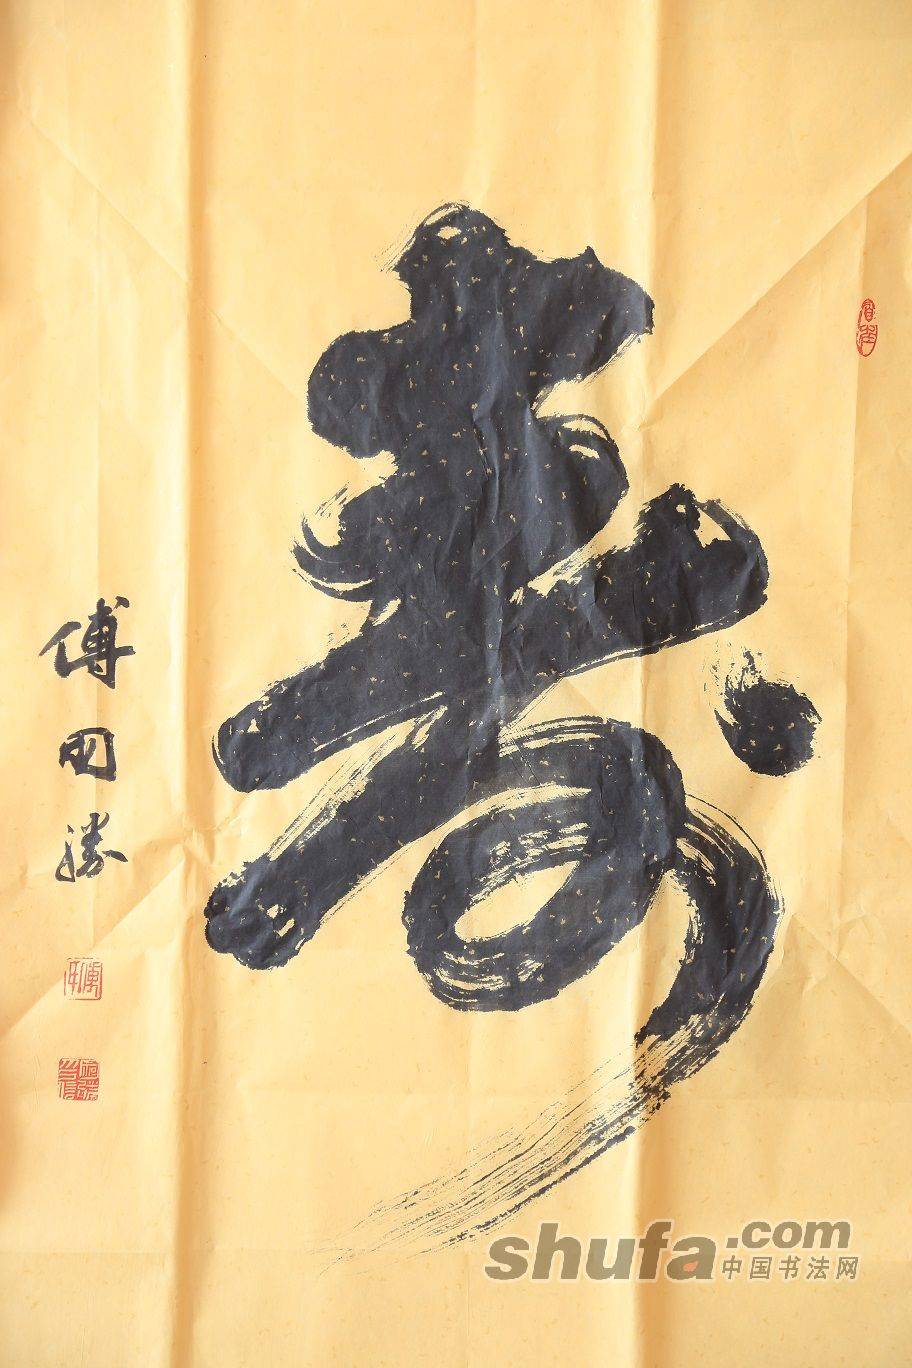 寿
傅国胜
shufa.com
中国书法网